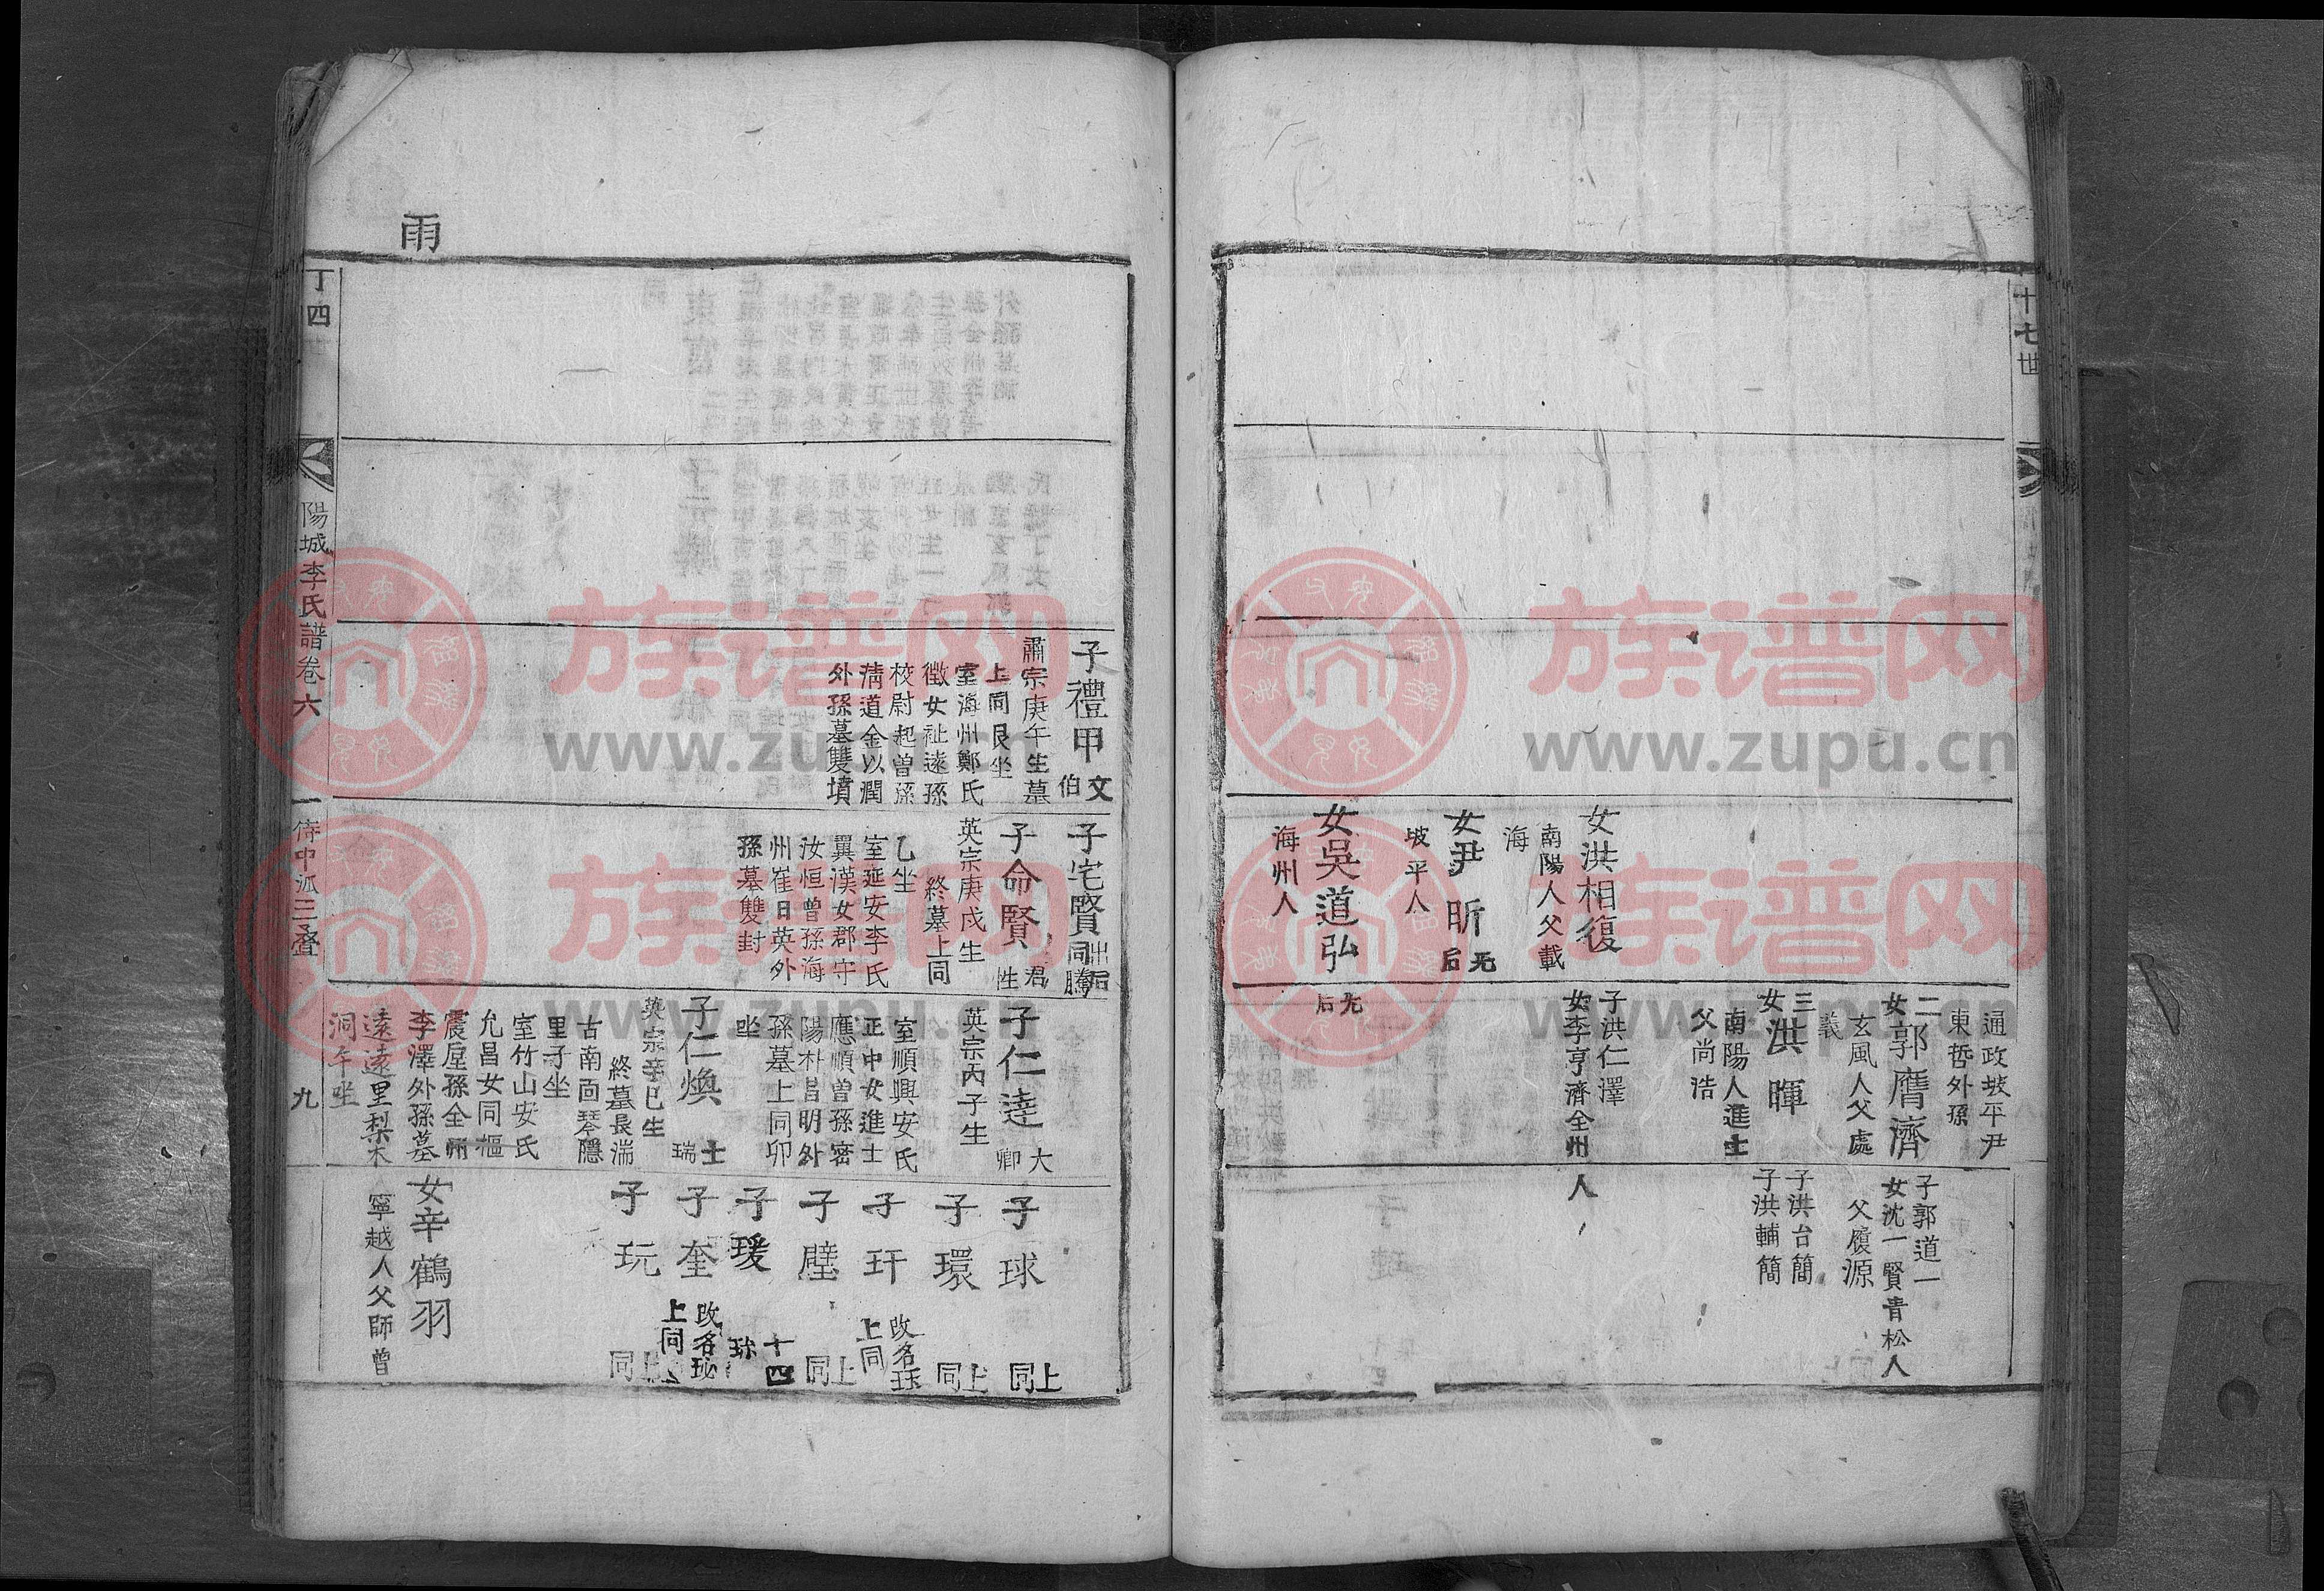 十七世
女洪相復
南陽人父載
海
女尹昕
无后
坡平人
女吳道弘
无后
海州人
通政坡平尹
東哲外孫
二女郭膺濟
玄風人父處
義
三女洪暉
南陽人進士
父尚浩
子洪仁澤
女李亨濟全州
人
子郭道一
女沈一賢青松人
父履源
子洪台簡
子洪輔簡
雨
子禮甲
文伯
肅宗庚午生墓
上同艮坐
室海州鄭氏
徵女祉遠孫
校尉起曾孫
清道金以潤
外孫墓雙墳
子宅賢
出后同騰
子命賢
君性
英宗庚戌生
終墓上同
乙坐
室延安李氏
翼漢女郡守
汝恒曾孫海
州崔日英外
孫墓雙封
子仁逵
大卿
英宗丙子生
室順興安氏
正中女進士
應順曾孫密
陽朴昌明外
孫墓上同卯
坐
子仁煥
士瑞
英宗辛巳生
終墓長湍
古南面琴隱
里子坐
室竹山安氏
允昌女同樞
震屋孫全州
李澤外孫墓
遠遠里梨木
洞午坐
子球
上同
子環
上同
子玕
改名珏
上同
子璧
上同
子瑗
十四
子奎
改名珌
上同
子玩
上同
女辛鶴羽
寧越人父師曾
丁四世
陽城李氏譜卷六
侍中派三叠
九
族谱网
www.zupu.cn
族谱网
www.zupu.cn
族谱网
www.zupu.cn
族谱网
www.zupu.cn